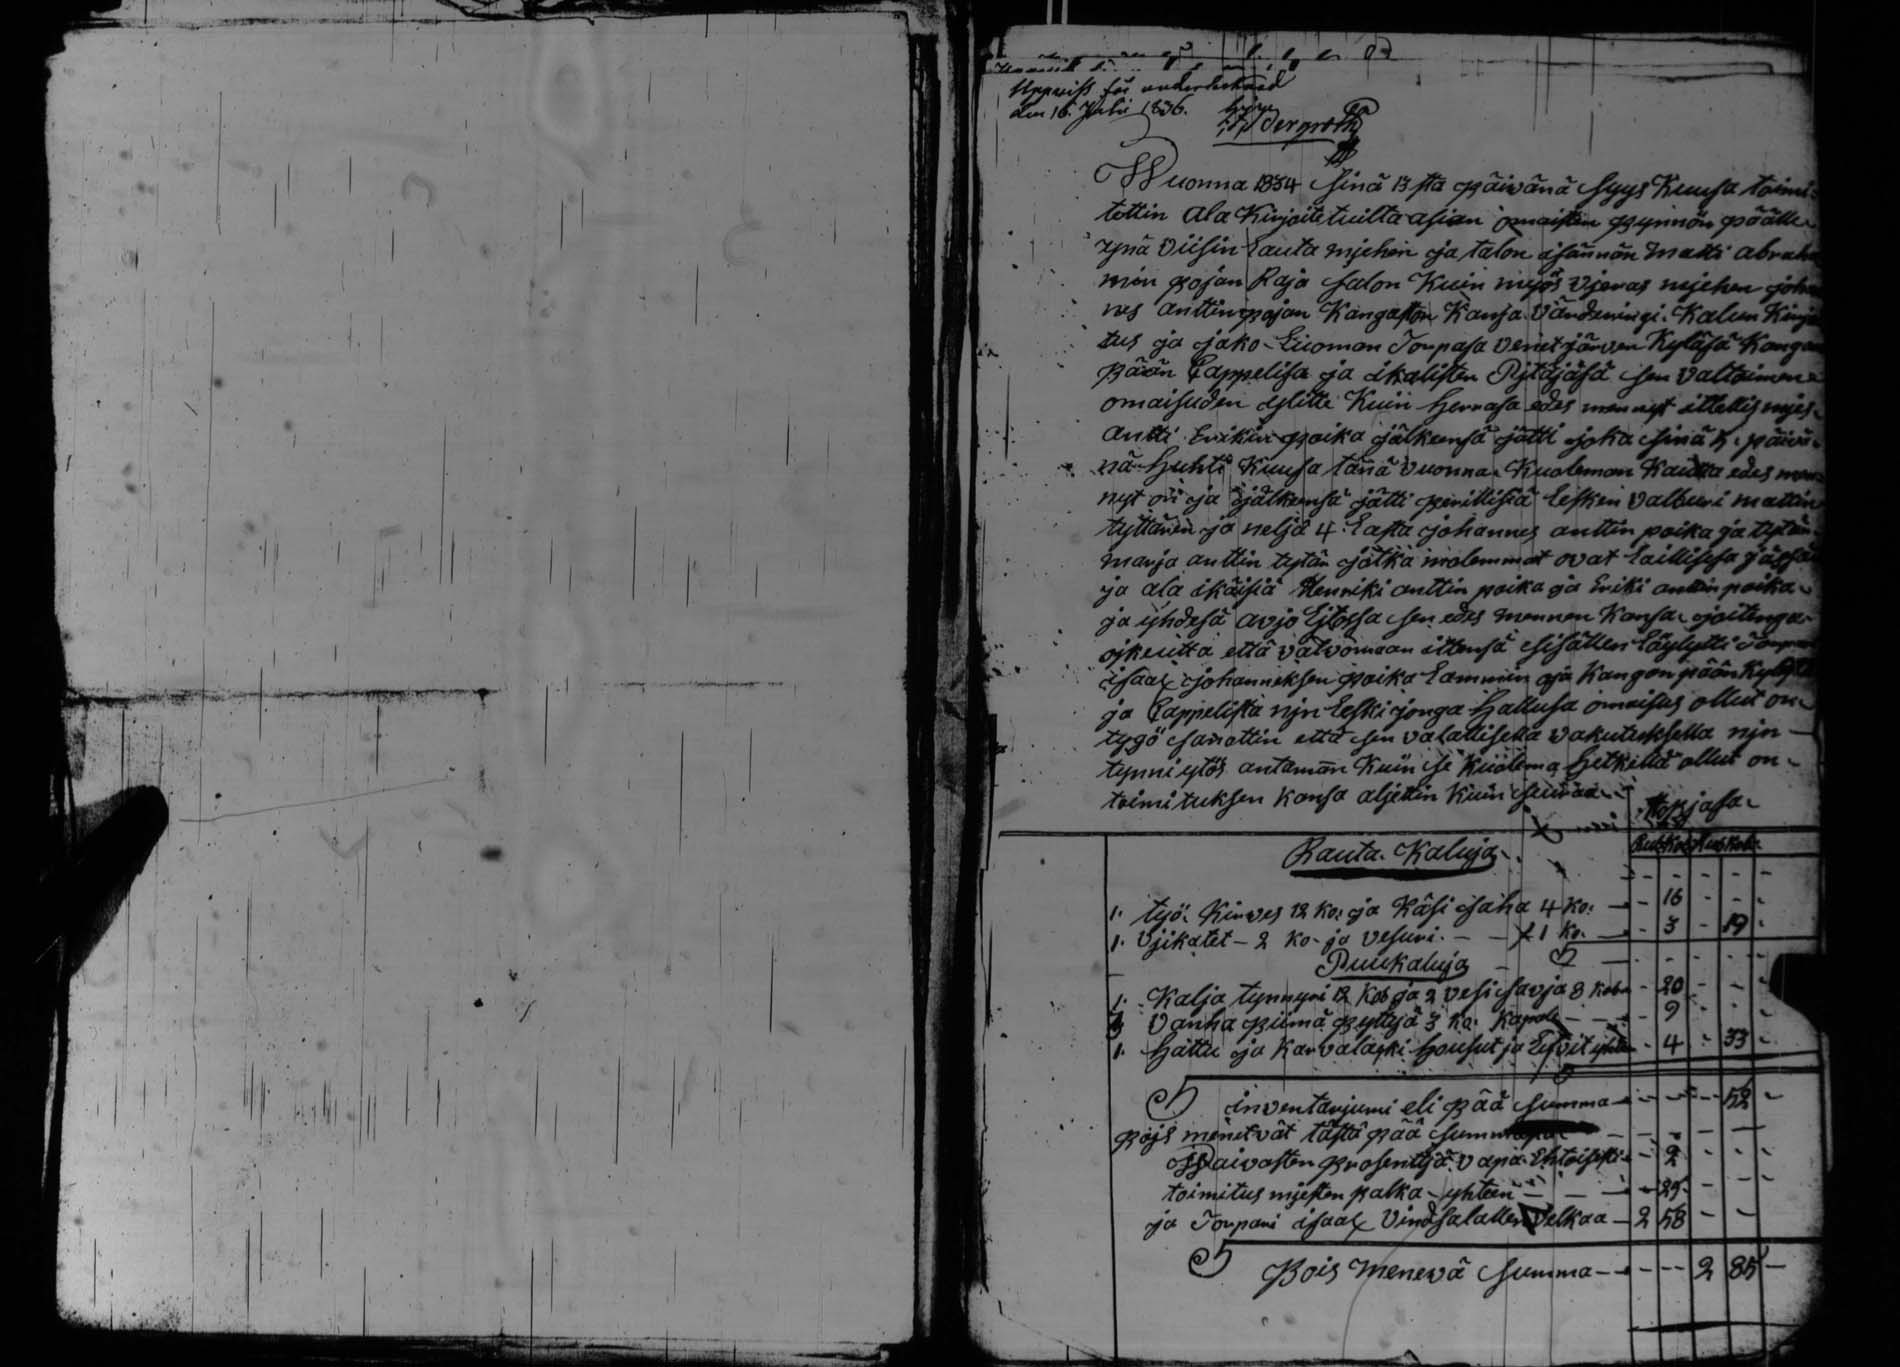 Uppvist för undertecknad
den 16. Julii 1836.
Wuonna 1834 sinä 13 sta päivänä syys Kuusa toimi-
tettin ala Kirjoitetuilta asian omaisten pyynnön päälle
ynä viisin Lauta miehen ja talon isännön matti abraha
min pojan Raja salon Kuin myös vieras miehen joha
nes anttin pojan Kangasten Kansa värdeeringi. Kalun Kirjo
tus ja jako Luoman Torpasa venet järven Kyläsä Kangan
pään Cappelisa ja ikalisten Pitäjäsä sen valtoimen
omaisuden ylitte Kuin Herrasa edes mennyt ittellis mies
antti Erikin poika jälkensä jätti joka sinä 5. päivä
nä Huhti Kuusa tänä vuonna Kuoleman Kautta edes men
nyt on ja jälkensä jätti perillisiä Lesken valburi mattin
tyttären ja neljä 4. Lasta johannes anttin poika ja tytär
marja anttin tytär jotka molemmat ovat Laillisesa jäsä
ja ala ikäisiä Henriki anttin poika ja Eriki anttin poika
ja yhdesä avjo Ejtossa sen edes mennen Kansa joitenga
ojkeutta että valvomaan ittensä sisällen Löylytti Torpari
isaac johanneksen poika Lammin oja Kangon pään Kyläst
ja Cappelista nin Leski jonga Hallusa omaisus ollut on
tygö sanottin että sen valallisella vakutuksella nin
tynni ylös antaman Kuin se Kuolema Hetkellä ollut on
toimituksen Kansa aljettin Kuin seuraa
Hopjasa
Rub Kob Rub Kob
Rauta Kaluja
1. työ Kirves 12 ko: ja Käsi saha 4 ko: - 16 - -
1. Vjikatet - 2 ko - ja vesuri - - 1 ko. - 3 - 19
Puukaluja
1. Kalja tynnyri 12 kob ja 2 vesi savja 8 kob - 20 - -
3 vanha piimä pyttyä 3 ko. Kapale - - 9 - -
1. Hattu ja Karvalakki Housut ja Lijvit yhten - 4 - 33
S inventarjumi eli pää summa - - - 52
pojs menetvät tästä pää
Waivasten prosenttjä vapa Ehtoisesti - 2 - -
toimitus miesten palka yhteen - - 25 - -
ja Torpari isaac Vindsalallen Velkaa - 2 58 - -
S Pois Menevä summa - - - 2 85 -